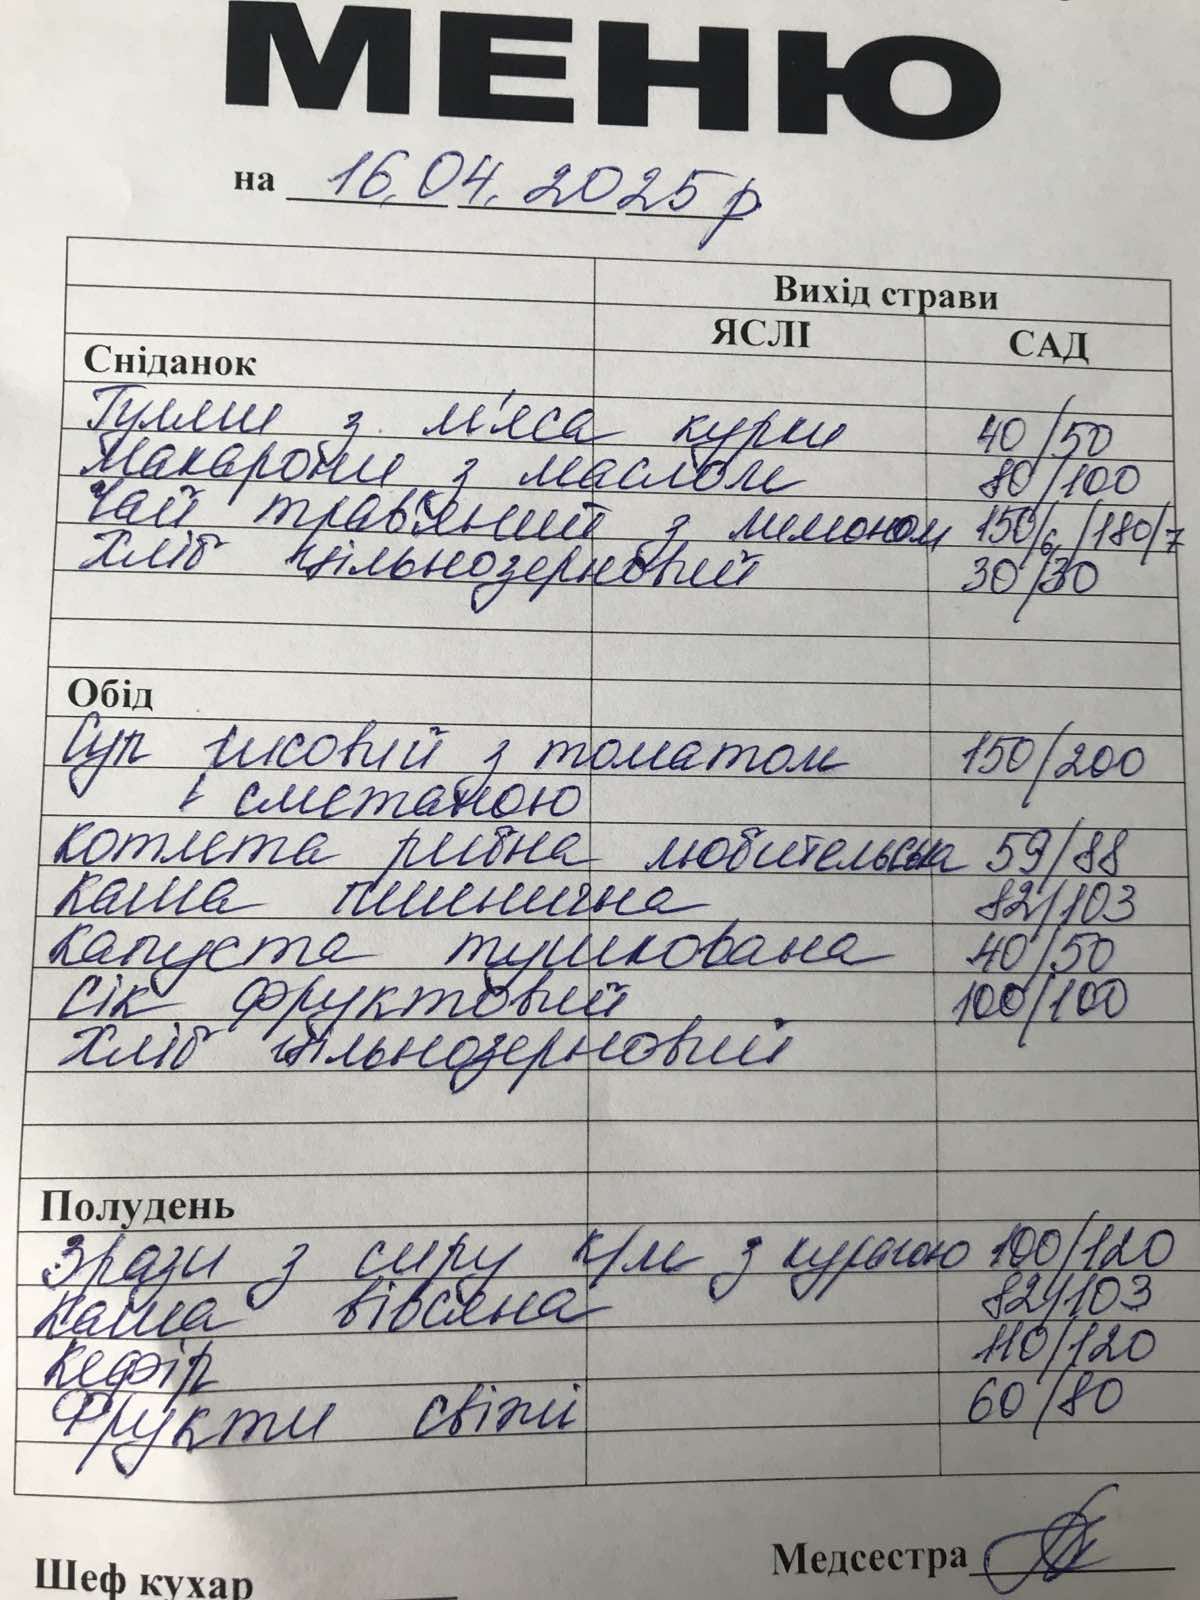 МЕНЮ
на 16.04.2025р
Вихід страви
ЯСЛІ САД
Сніданок
Гуляш з м'яса курки 40/50
Макарони з маслом 80/100
Чай трав'яний з лимоном 150/6/180/7
Хліб цільнозерновий 30/30
Обід
Суп рисовий з томатом 150/200
і сметаною
Котлета рибна любительська 59/88
Каша пшенична 82/103
Капуста тушкована 40/50
Сік фруктовий 100/100
Хліб цільнозерновий
Полудень
Зрази з сиру к/м з курагою 100/120
Каша вівсяна 82/103
Кефір 110/120
Фрукти свіжі 60/80
Медсестра
Шеф кухар